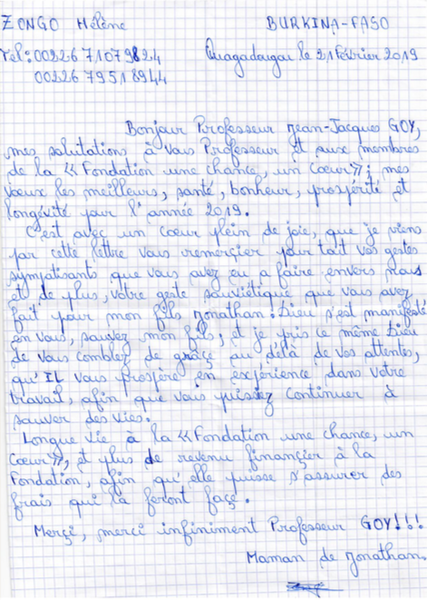 ZONGO Hélène BURKINA-FASO
Tel: 00226 71079824 Ouagadougou le 21 Février 2019
00226 79518944
Bonjour Professeur Jean-Jacques GOY,
mes salutations à vous Professeur et aux membres
de la << Fondation une chance, un Cœur>>; mes
vœux les meilleurs, santé, bonheur, prospérité et
longévité pour l'année 2019.
C'est avec un cœur plein de joie, que je viens
par cette lettre vous remercier pour tout vos gestes
sympatisants que vous avez eu a faire envers nous
et de plus, votre geste que vous avez
fait pour mon fils Jonathan. Dieu s'est manifesté
en vous, sauvez mon fils; et je pris ce même Dieu
de vous comblez de grâce au délà de vos attentes,
qu'Il vous prospère en expérience dans votre
travail, afin que vous puissiez continuer à
sauver des vies.
Longue vie à la <<Fondation une chance, un
Cœur>>, et plus de revenu financier à la
Fondation, afin qu'elle puisse s'assurer des
frais qui la feront façe.
Merçi, merci infiniment Professeur GOY!!!
Maman de Jonathan.